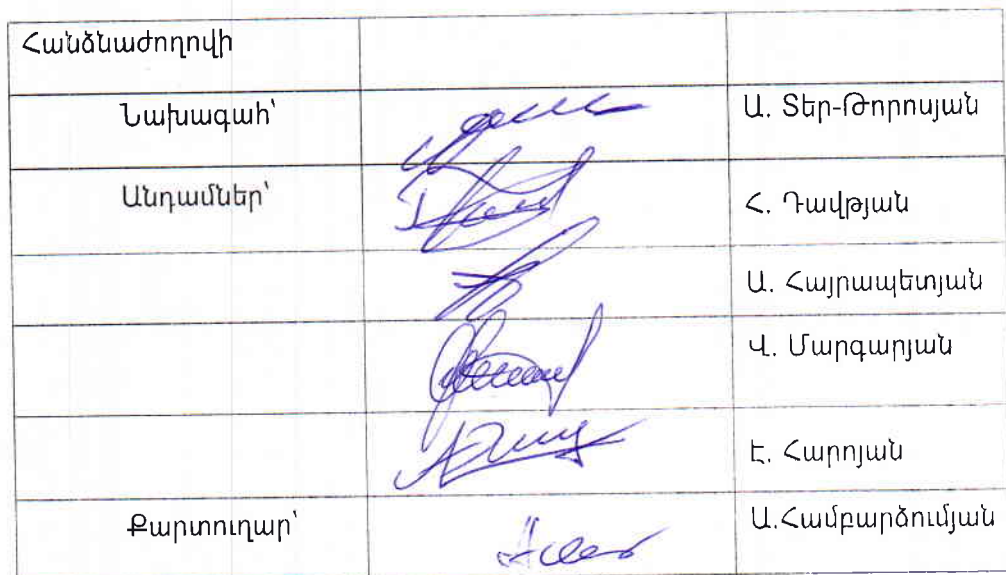 Հանձնաժողովի
Նախագահ՝ Ա. Տեր-Թորոսյան
Անդամներ՝ Հ. Դավթյան
Ա. Հայրապետյան
Վ. Մարգարյան
Է. Հարոյան
Քարտուղար՝ Ա.Համբարձումյան